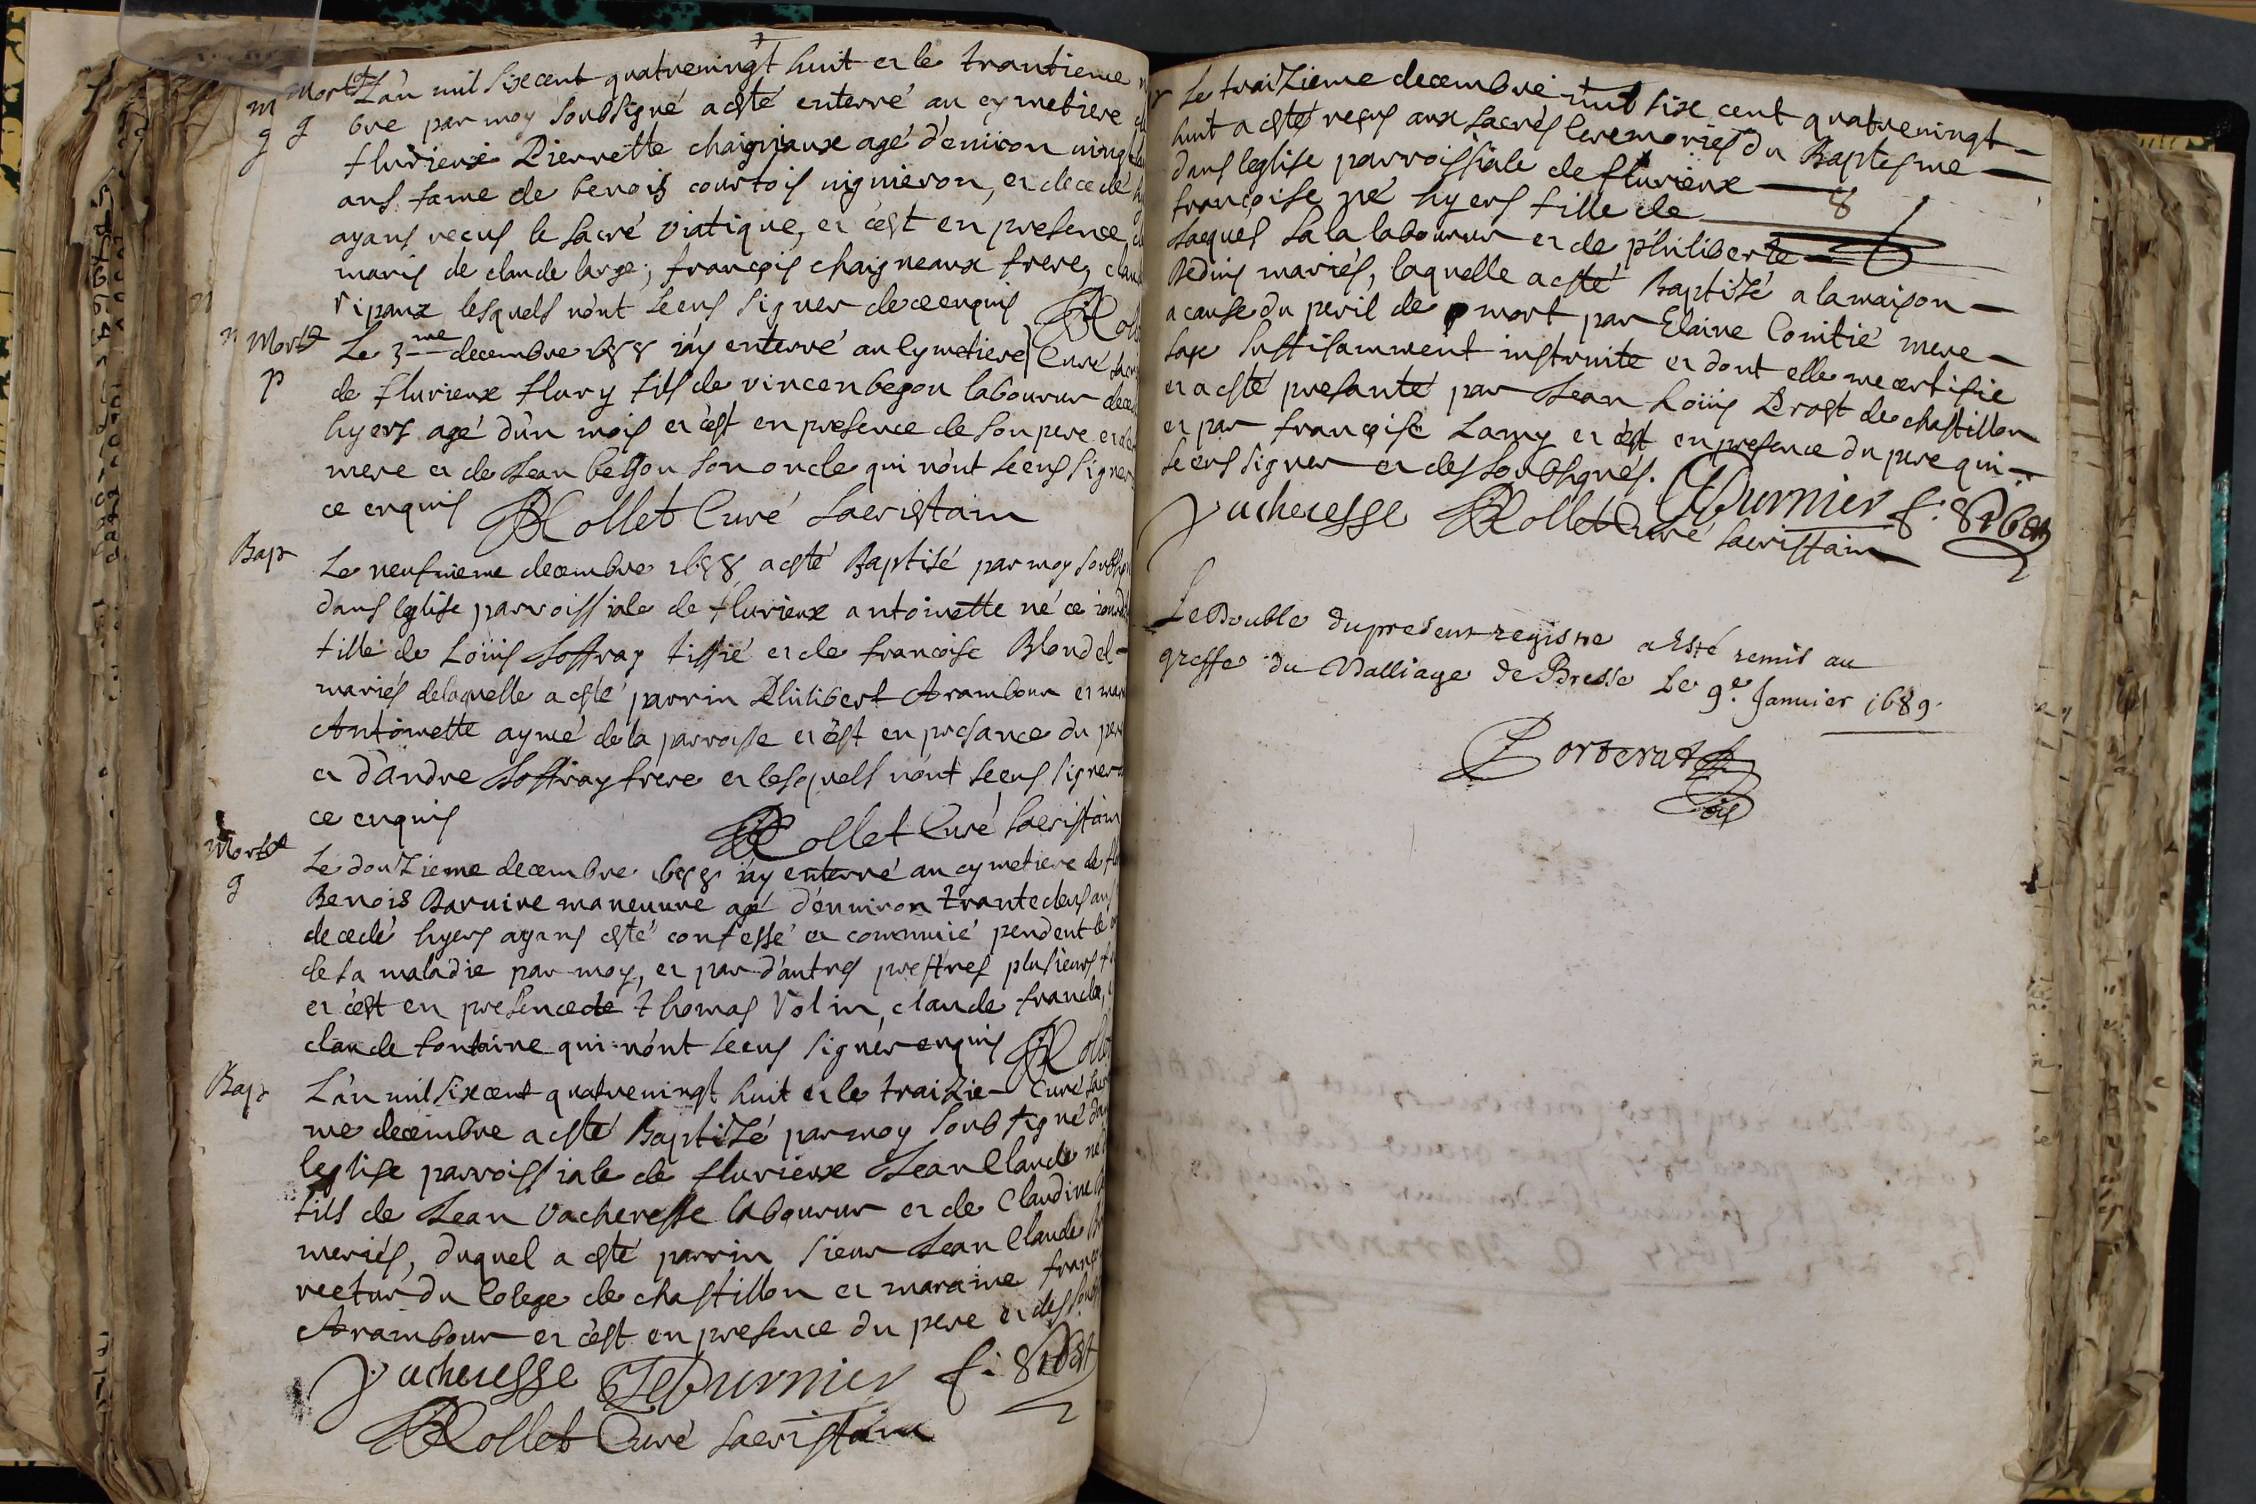 Mort L'an mil sixcent quatrevingt huit et le trantieme
bre par moy soubsigné a esté enterré au cymetiere
flurieux Pierrette chaigniaux agé d'environ vingt
ans fame de benois courtois vigneron, et decedé
ayans reçus le sacré viatique, et c'est en presence
maris de claude large, françois chaigneaux frere,
ripaux lesquels n'ont sceus signer de ce enquis Roll
Mort Le 3me decembre 1688 i'ay enterré au Cymetiere Curé
de flurieux flury fils de vincen begon labourur
hyers agé d'un mois et c'est en presence de son pere
mere et de Jean begon son oncle qui n'ont sceus signer
ce enquis Rollet Curé sacristain
Bap Le neufvieme decembre 1688 a esté Baptisé par moy
dans leglise parroissiale de flurieux antoinette né ce
fille de Loüis Joffray tissié et de francoise Blondel
mariés delaquelle a esté parrin Philibert Arambour et
Antoinette aymé de la parroisse et c'est en presance du
et d'andre Joffray frere et lesquels n'ont sceus signer
ce enquis Rollet Curé sacristain
Mort Le douzieme decembre 1688 i'ay enterré au cymetiere de
Benois Baruire maneuvre agé d'environ trante deus ans
decedé hyers ayans esté confessé et communié pendent le
de sa maladie par moy, et par d'autres prestres plusieurs
et c'est en presence de thomas Volin, claude
claude fontaine qui n'ont sceus signer enquis Rollet
Bap L'an mil sixcent quatrevingt huit et le traizie- Curé
me decembre a esté Baptizé par moy soubsigné
leglise parroissiale de flurieux Jean Claude
fils de Jean vacheresse labourur et de Claudine
meriés, duquel a esté parrin sieur Jean Claude
rectur du Colege de chastillon et maraine
Arambour et c'est en presence du pere et des
vacheresse
Rollet Curé sacristain
Le traizieme decembre mil six cent quatrevingt
huit a esté reçus aux sacrés ceremonies du Baptesme
dans leglise parroissiale de flurieux
françoise né hyers fille de
Jaques Sala labourur et de philiberte
Bedins mariés, laquelle a esté Baptisé a la maison
a cause du peril de mort par Elaine Comtié mere
sage suffisamment instruite et dont elle me certifie
et a esté presanté par Jean Loüis Prost de chastillon
et par françoise Lamy et c'est en presence du pere qui
sceus signer et des soubsignés.
vacheresse Rollet Curé sacristain
Le Double du present registre a esté remis au
greffe du Balliage de Bresse Le 9e. Januier 1689.